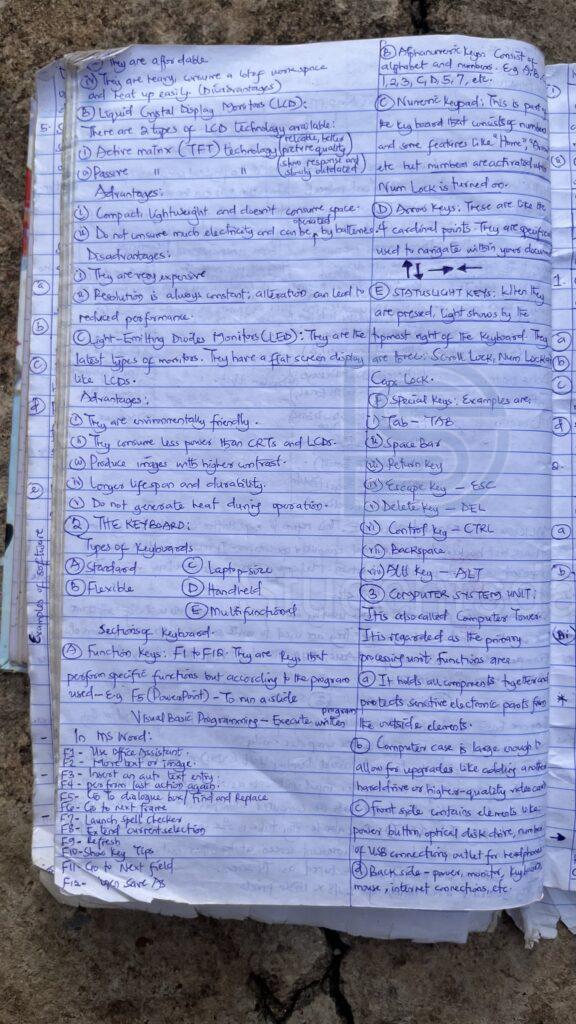 - They are affordable
(iv) They are heavy, consume a lot of workspace
and heat up easily. (Disadvantages)
(B) Liquid Crystal Display Monitors (LCD):
There are 2 types of LCD technology available:
(i) Active matrix (TFT) technology (reliable, better picture quality)
(ii) Passive " " (slow response and slowly outdated)
Advantages:
(i) Compact, lightweight and doesn't consume space.
(ii) Do not consume much electricity and can be operated by batteries.
Disadvantages:
(i) They are very expensive
(ii) Resolution is always constant; alteration can lead to
reduced performance.
(C) Light-Emitting Diodes Monitors (LED): They are the
latest types of monitors. They have a flat screen display
like LCDs.
Advantages:
(i) They are environmentally friendly.
(ii) They consume less power than CRTs and LCDs.
(iii) Produce images with higher contrast.
(iv) Longer lifespan and durability.
(v) Do not generate heat during operation.
(2) THE KEYBOARD:
Types of Keyboards
(A) Standard (C) Laptop-size
(B) Flexible (D) Handheld
(E) Multifunctional
Sections of Keyboard.
(A) Function Keys: F1 to F12. They are keys that
perform specific functions but according to the program
used - E.g F5 (PowerPoint) - To run a slide
Visual Basic Programming - Execute written program
In MS Word:
F1 - Use Office Assistant.
F2 - Move text or image.
F3 - Insert an auto text entry.
F4 - perform last action again.
F5 - Go to dialogue box / Find and Replace
F6 - Go to next frame
F7 - Launch spell checker
F8 - Extend current selection
F9 - Refresh
F10 - Show Key Tips
F11 - Go to Next field
F12 - Save As
(B) Alphanumeric Keys: Consist of
alphabet and numbers. E.g A, B,
1, 2, 3, C, D, 5, 7, etc.
(C) Numeric Keypad: This is part of
the keyboard that consists of numbers
and some features like "Home"
etc but number are activated when
Num Lock is turned on.
(D) Arrow Keys: These are like the
4 cardinal points. They are specifically
used to navigate within your document
↑↓ → ←
(E) STATUSLIGHT KEYS: When they
are pressed, light shows by the
topmost right of the Keyboard. They
are three: Scroll Lock, Num Lock &
Caps Lock.
(F) Special Keys: Examples are;
i) Tab - TAB
ii) Space bar
iii) Return key
iv) Escape Key - ESC
v) Delete Key - DEL
vi) Control Key - CTRL
vii) Backspace
viii) Alt Key - ALT
(3) COMPUTER SYSTEM UNIT:
It is also called Computer Tower.
It is regarded as the primary
processing unit. Functions are:
(a) It holds all components together and
protects sensitive electronic parts from
the outside elements.
(b) Computer case is large enough to
allow for upgrades like adding another
hard drive or higher-quality video card
(c) Front side contains elements like:
power button, optical disk drive, number
of USB connections, outlet for headphones
(d) Back side - power, monitor, keyboard,
mouse, internet connections, etc.
Examples of software